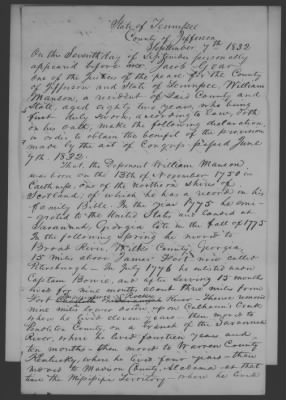 State of Tennessee
County of Jefferson
September 7th 1832
On the Seventh day of September personally
appeared before me, Jacob
one of the justices of the peace for the County
of Jefferson and State of Tennessee, William
Manson, a resident of said County and
State, aged eighty two years, who being
first duly sworn, according to law, doth
on his oath, make the following declaration,
in order to obtain the benefit of the provision
made by the act of Congress passed June
7th 1832.
That the Deponent William Manson,
was born on the 13th of November 1750 in
Caithness, one of the northern shires of
Scotland, of which he has a record in his
family Bible. In the year 1775 he emi-
grated to the United States and landed at
Savannah, Georgia late in the fall of 1775
In the following Spring he moved to
Broad River, Wilkes County, Georgia,
15 miles above James' Fort now called
Petersburgh - In July 1776 he enlisted under
Captain Bowie, and after serving 15 months
lived for nine months about three miles from
Fort River - Thence removed
nine miles lower down upon Catham's Creek
where he lived eleven years - then moved to
Pendleton County, on a branch of the Savannah
River, where he lived fourteen years and
ten months - then moved to Warren County
Kentucky, where he lived four years - then
moved to Madison County, Alabama at that
time the Mississippi Territory - where he lived